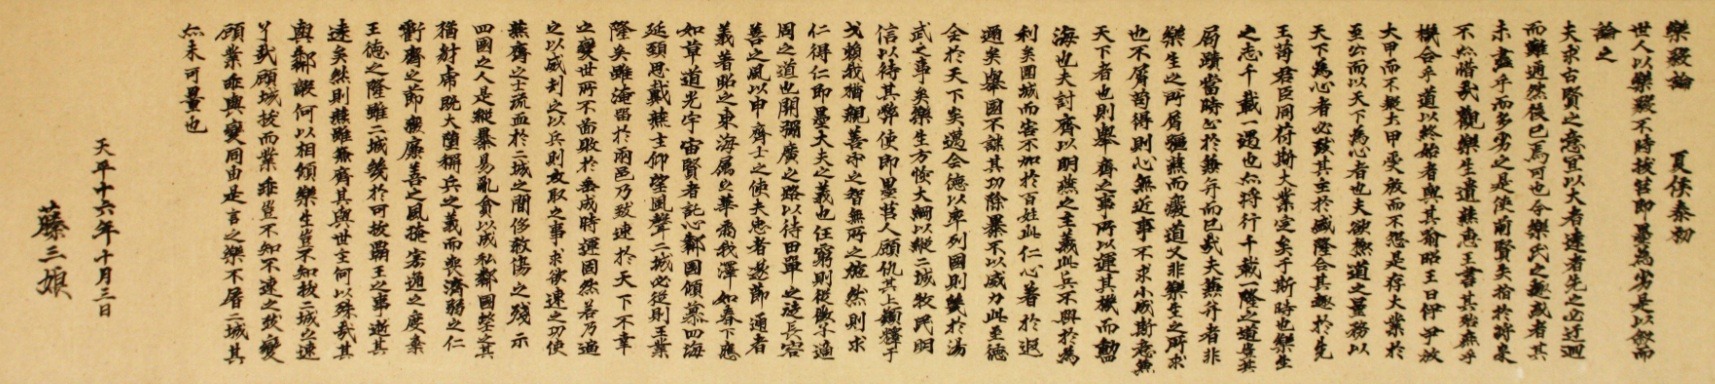 樂毅論　夏侯泰初
世人以樂毅不時拔莒即墨為劣是以敘而
論之
夫求古賢之意宜以大者遠者先之必迂迴
而難通然後已焉可也今樂氏之趣或者其
未盡乎而多劣之是使前賢失指於將來
不亦惜哉觀樂生遺燕惠王書其殆庶乎
機合乎道以終始者與其喻昭王曰伊尹放
大甲而不疑大甲受放而不怨是存大業於
至公而以天下為心者也夫欲極道之量務以
天下為心者必致其主於盛隆合其趣於先
王苟君臣同符斯大業定矣于斯時也樂生
之志千載一遇也亦將行千載一隆之道豈其
局蹟當時止於兼并而已哉夫兼并者非
樂生之所屑彊燕而廢道又非樂生之所求
也不屑苟得則心無近事不求小成斯意兼
天下者也則舉齊之事所以運其機而動四
海也夫討齊以明燕之主義此兵不興於為
利矣圍城而害不加於百姓此仁心著於遐
邇矣舉國不謀其功除暴不以威力此至德
全於天下矣邁全德以率列國則幾於湯
武之事矣樂生方恢大綱以縱二城牧民明
信以待其弊使即墨莒人顧仇其上願釋干
戈賴我猶親善守之智無所之施然則求
仁得仁即墨大夫之義也任窮則從微子適
周之道也開彌廣之路以待田單之徒長容
善之風以申齊士之使夫忠者遂節通者
義著昭之東海屬之華裔我澤如春下應
如草道光宇宙賢者託心鄰國傾慕四海
延頸思戴燕主仰望風聲二城必從則王業
隆矣雖淹留於兩邑乃致速於天下不幸
之變世所不圖敗於垂成時運固然若乃逼
之以威劫之以兵則攻取之事求欲速之功使
燕齊之士流血於二城之間侈殺傷之殘示
四國之人是縱暴易亂貪以成私鄰國望之其
猶豺虎既大墮稱兵之義而喪濟弱之仁
虧齊之節廢廉善之風掩宏通之度棄
王德之隆雖二城幾於可拔霸王之事逝其
遠矣然則燕雖兼齊其與世主何以殊哉其
與鄰敵何以相傾樂生豈不知拔城之速
了哉顧城拔而業乖豈不知不速之致變
顧業乖與變同由是言之樂不屠二城其
亦未可量也
天平十六年十月三日
藤三娘